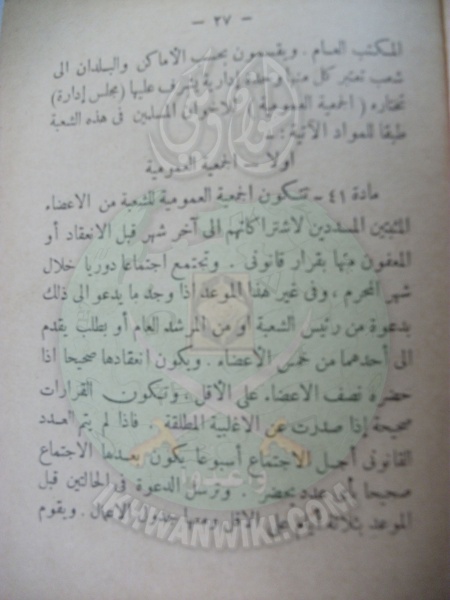 — ٢٧ —
المكتب العام . ويقسمون بحسب الأماكن والبلدان الى
شعب تعتبر كل منها وحدة إدارية يشرف عليها (مجلس إدارة)
تختاره ( الجمعية العمومية ) للاخوان المسلمين فى هذه الشعبة
طبقا للمواد الآتية : —
اولا — الجمعية العمومية
مادة ٤١ — تتكون الجمعية العمومية للشعبة من الاعضاء
المثبتين المسددين لاشتراكاتهم الى آخر شهر قبل الانعقاد أو
المعفون منها بقرار قانونى . وتجتمع اجتماعا دوريا خلال
شهر المحرم ، وفى غير هذا الموعد اذا وجد ما يدعو الى ذلك
بدعوة من رئيس الشعبة أو من المرشد العام أو بطلب يقدم
الى أحدهما من خمس الأعضاء . ويكون انعقادها صحيحا اذا
حضره نصف الاعضاء على الأقل ، وتكون القرارات
صحيحة إذا صدرت عن الاغلبية المطلقة . فاذا لم يتم العدد
القانونى أجل الاجتماع أسبوعا يكون بعدها الاجتماع
صحيحا أى عدد يحضر . وترسل الدعوة فى الحالتين قبل
الموعد بثلاثة أيام على الاقل ومعها جدول الاعمال . ويقوم
إخوان ويكي
وأعدوا
IKHWANWIKI.COM